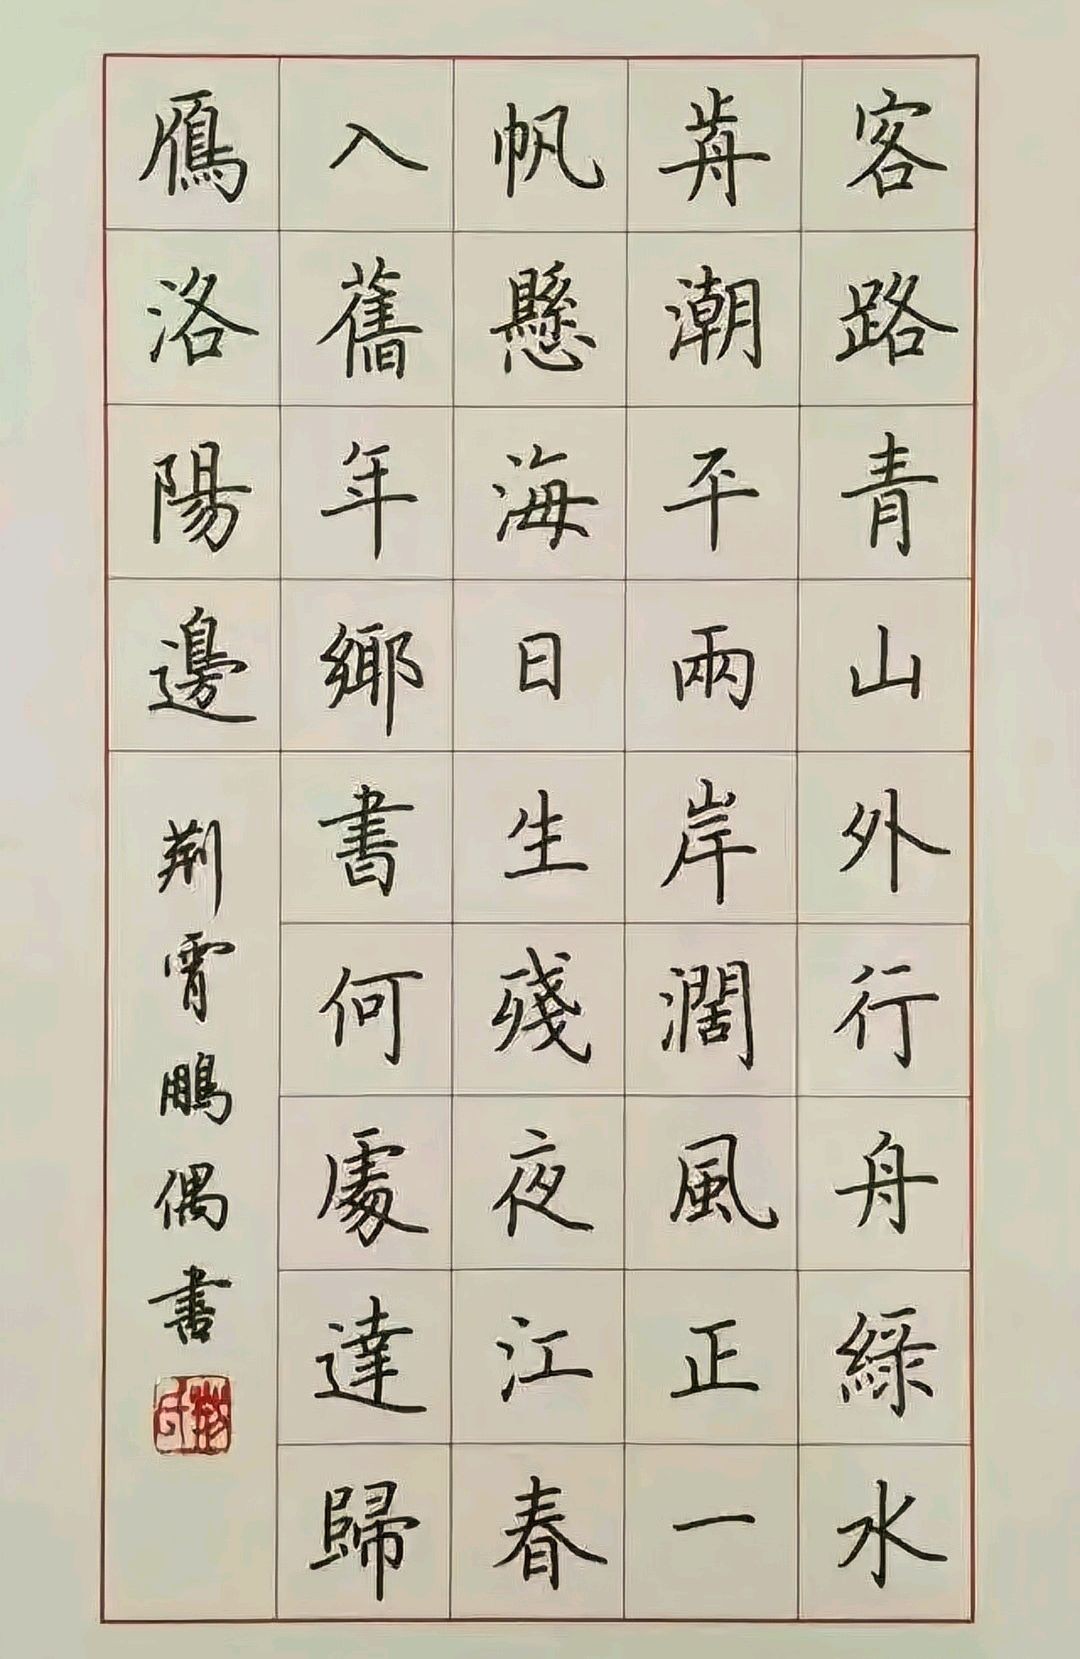 客路青山外行舟綠水
歬潮平兩岸濶風正一
帆懸海日生殘夜江春
入舊年鄉書何處達歸
鴈洛陽邊
荆霄鵬偶書